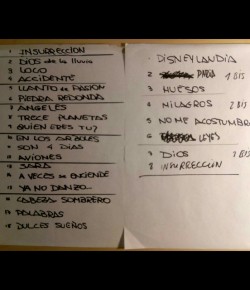 1 INSURRECCION
2 DIOS de la lluvia
3 LOCO
4 ACCIDENTE
5 LLANTO de PASIÓN
6 PIEDRA REDONDA
7 ANGELES
8 TRECE PLANETAS
9 QUIEN ERES TU?
10 EN LOS ARBOLES
11 SON 4 DIAS
12 AVIONES
13 SARA
14 A VECES SE ENCIENDE
15 YA NO DANZO...
16 CABEZA SOMBRERO
17 PALABRAS
18 DULCES SUEÑOS
1 DISNEYLANDIA
2 PAPÁ 1 BIS
3 HUESOS
4 MILAGROS 2 BIS
5 NO ME ACOSTUMBRO
6 LEYES
7 DIOS 1 BIS
8 INSURRECCION